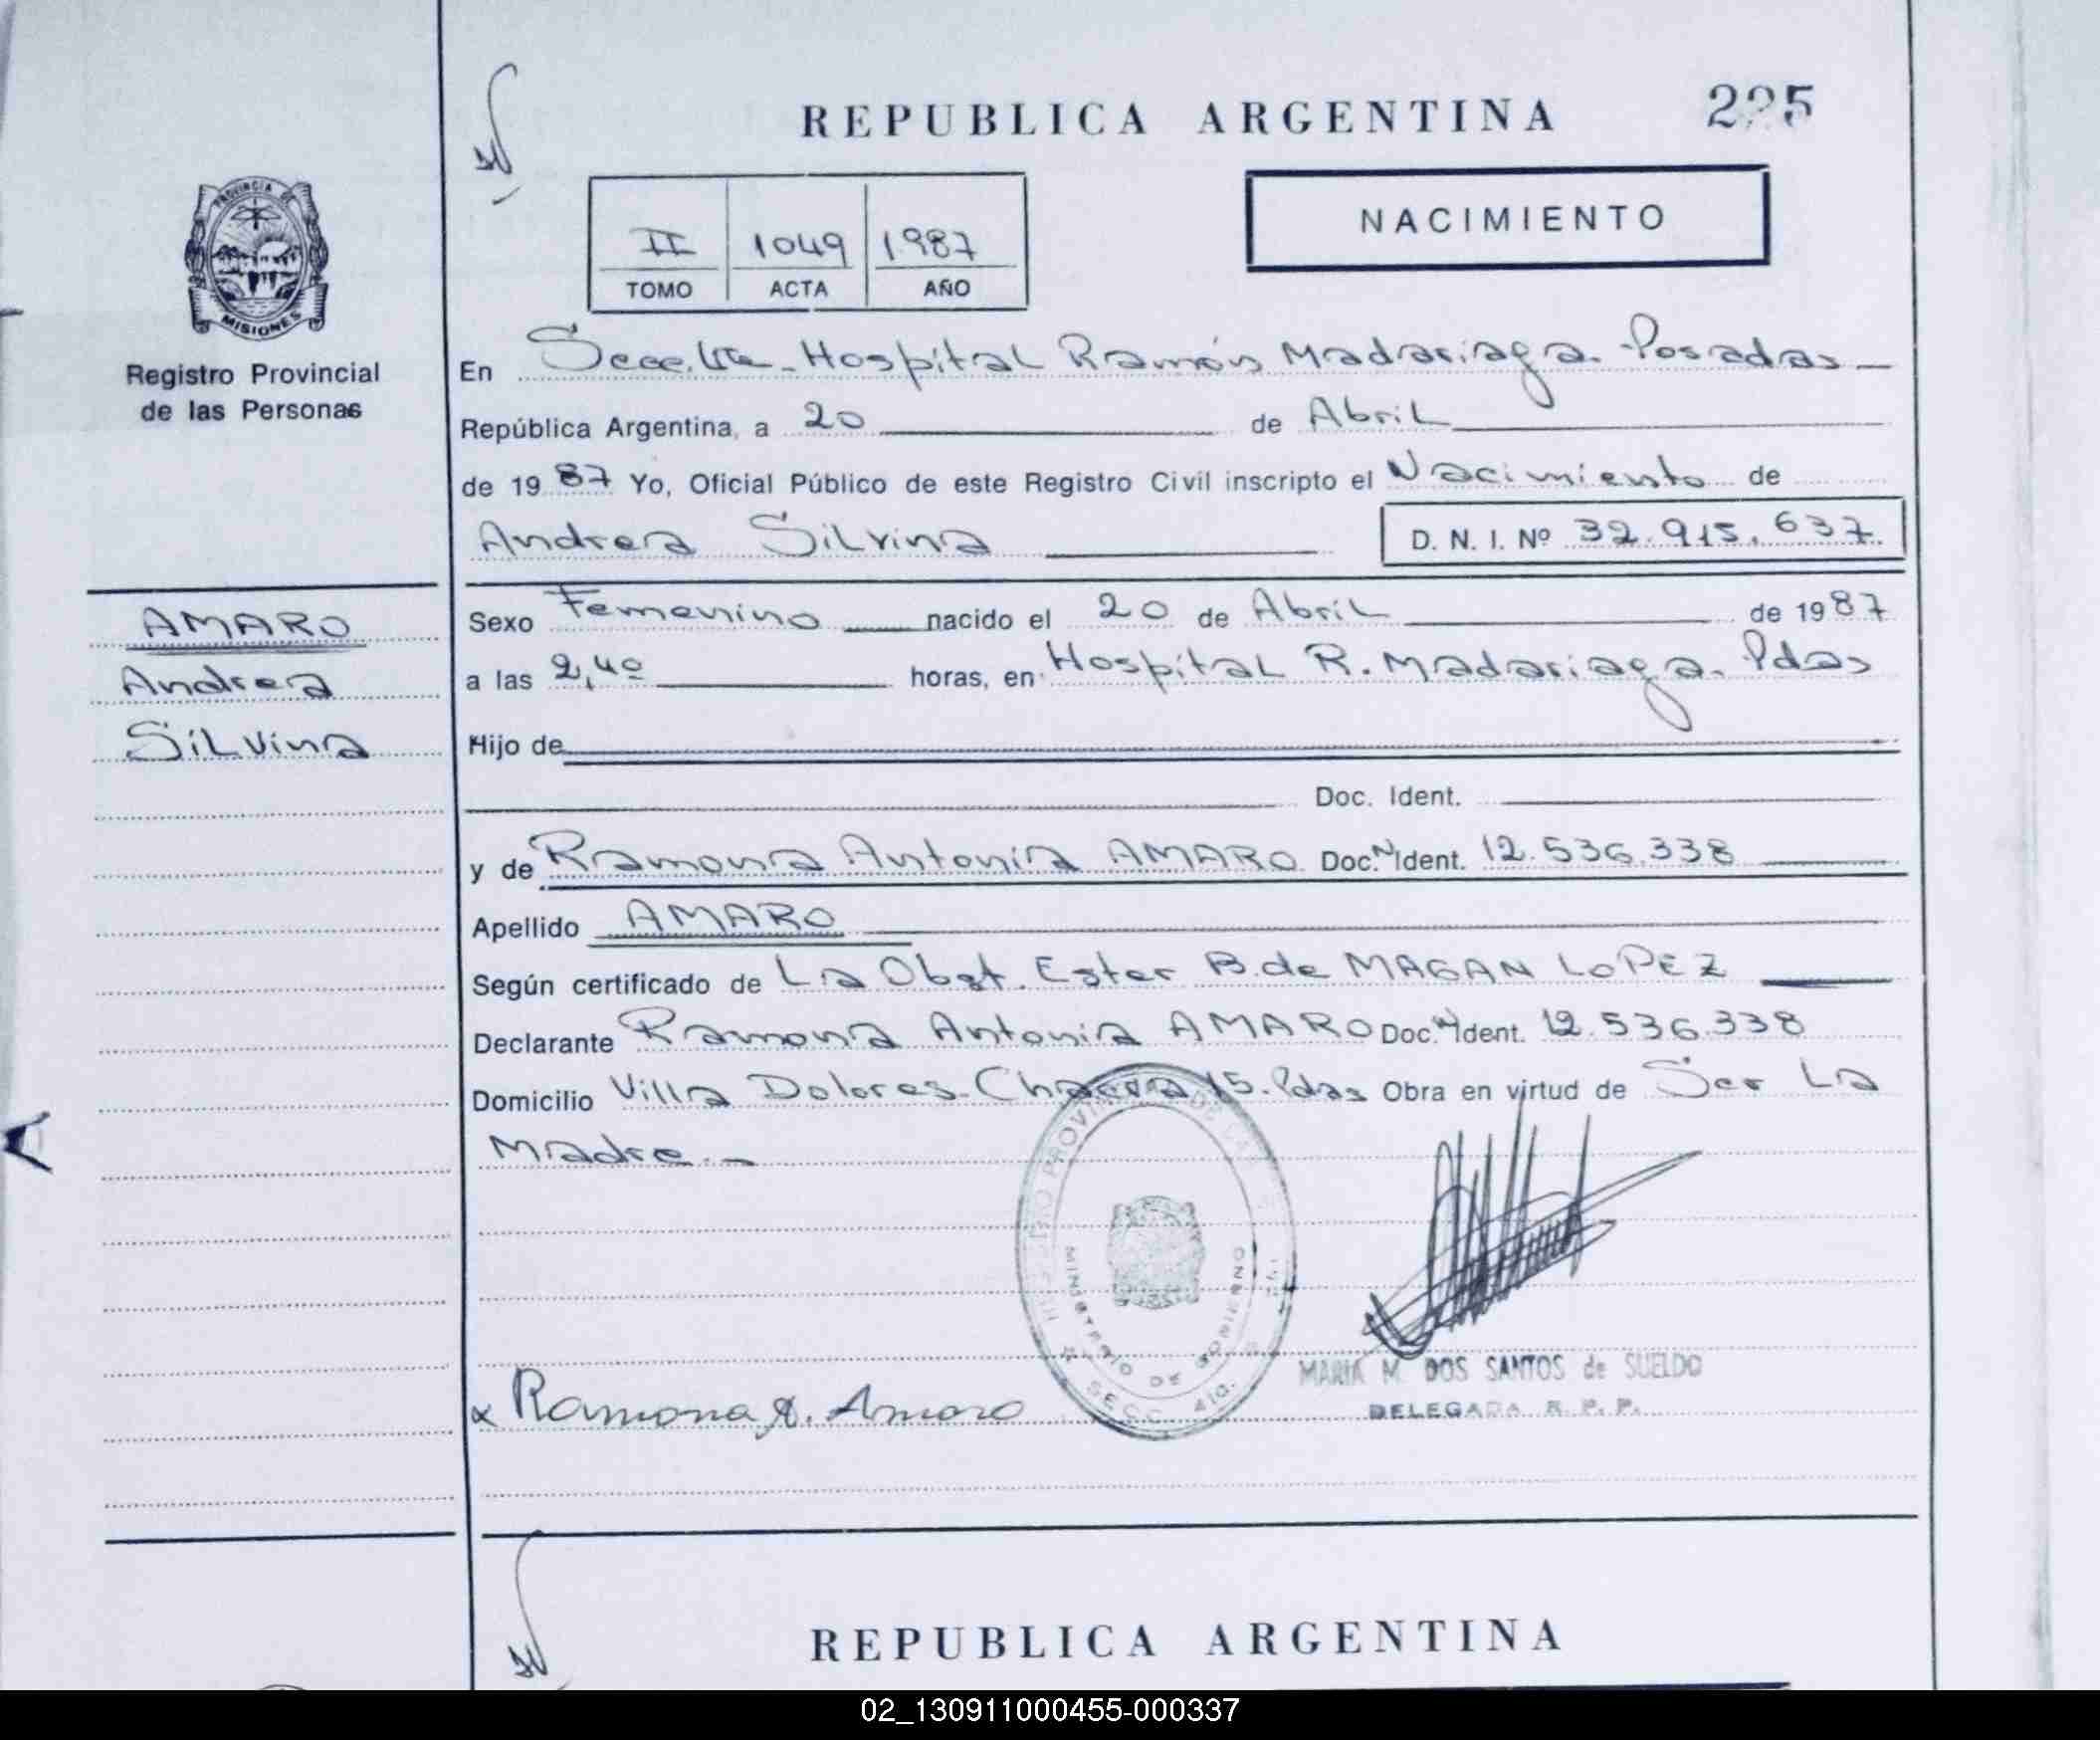 REPUBLICA ARGENTINA 225
PROVINCIA DE
MISIONES
Registro Provincial
de las Personas
II 1049 1987
TOMO ACTA AÑO
NACIMIENTO
En Secc. 4ta - Hospital Ramón Madariaga. Posadas
República Argentina, a 20 de Abril
de 1987 Yo, Oficial Público de este Registro Civil inscripto el Nacimiento de
Andrea Silvina D. N. I. Nº 32.915.637
AMARO
Andrea
Silvina
Sexo Femenino nacido el 20 de Abril de 1987
a las 2,40 horas, en Hospital R. Madariaga. Pdas
Hijo de
Doc. Ident.
y de Ramona Antonia AMARO Doc. Ident. 12.536.338
Apellido AMARO
Según certificado de La Obst. Ester B. de MAGAN LOPEZ
Declarante Ramona Antonia AMARO Doc. Ident. 12.536.338
Domicilio Villa Dolores - Chacra 15. Pdas Obra en virtud de Ser La
Madre.-
MINISTERIO DE GOBIERNO
SECC. 4ta.
MARIA M. DOS SANTOS de SUELDO
DELEGADA R. P. P.
x Ramona A. Amaro
REPUBLICA ARGENTINA
02_130911000455-000337